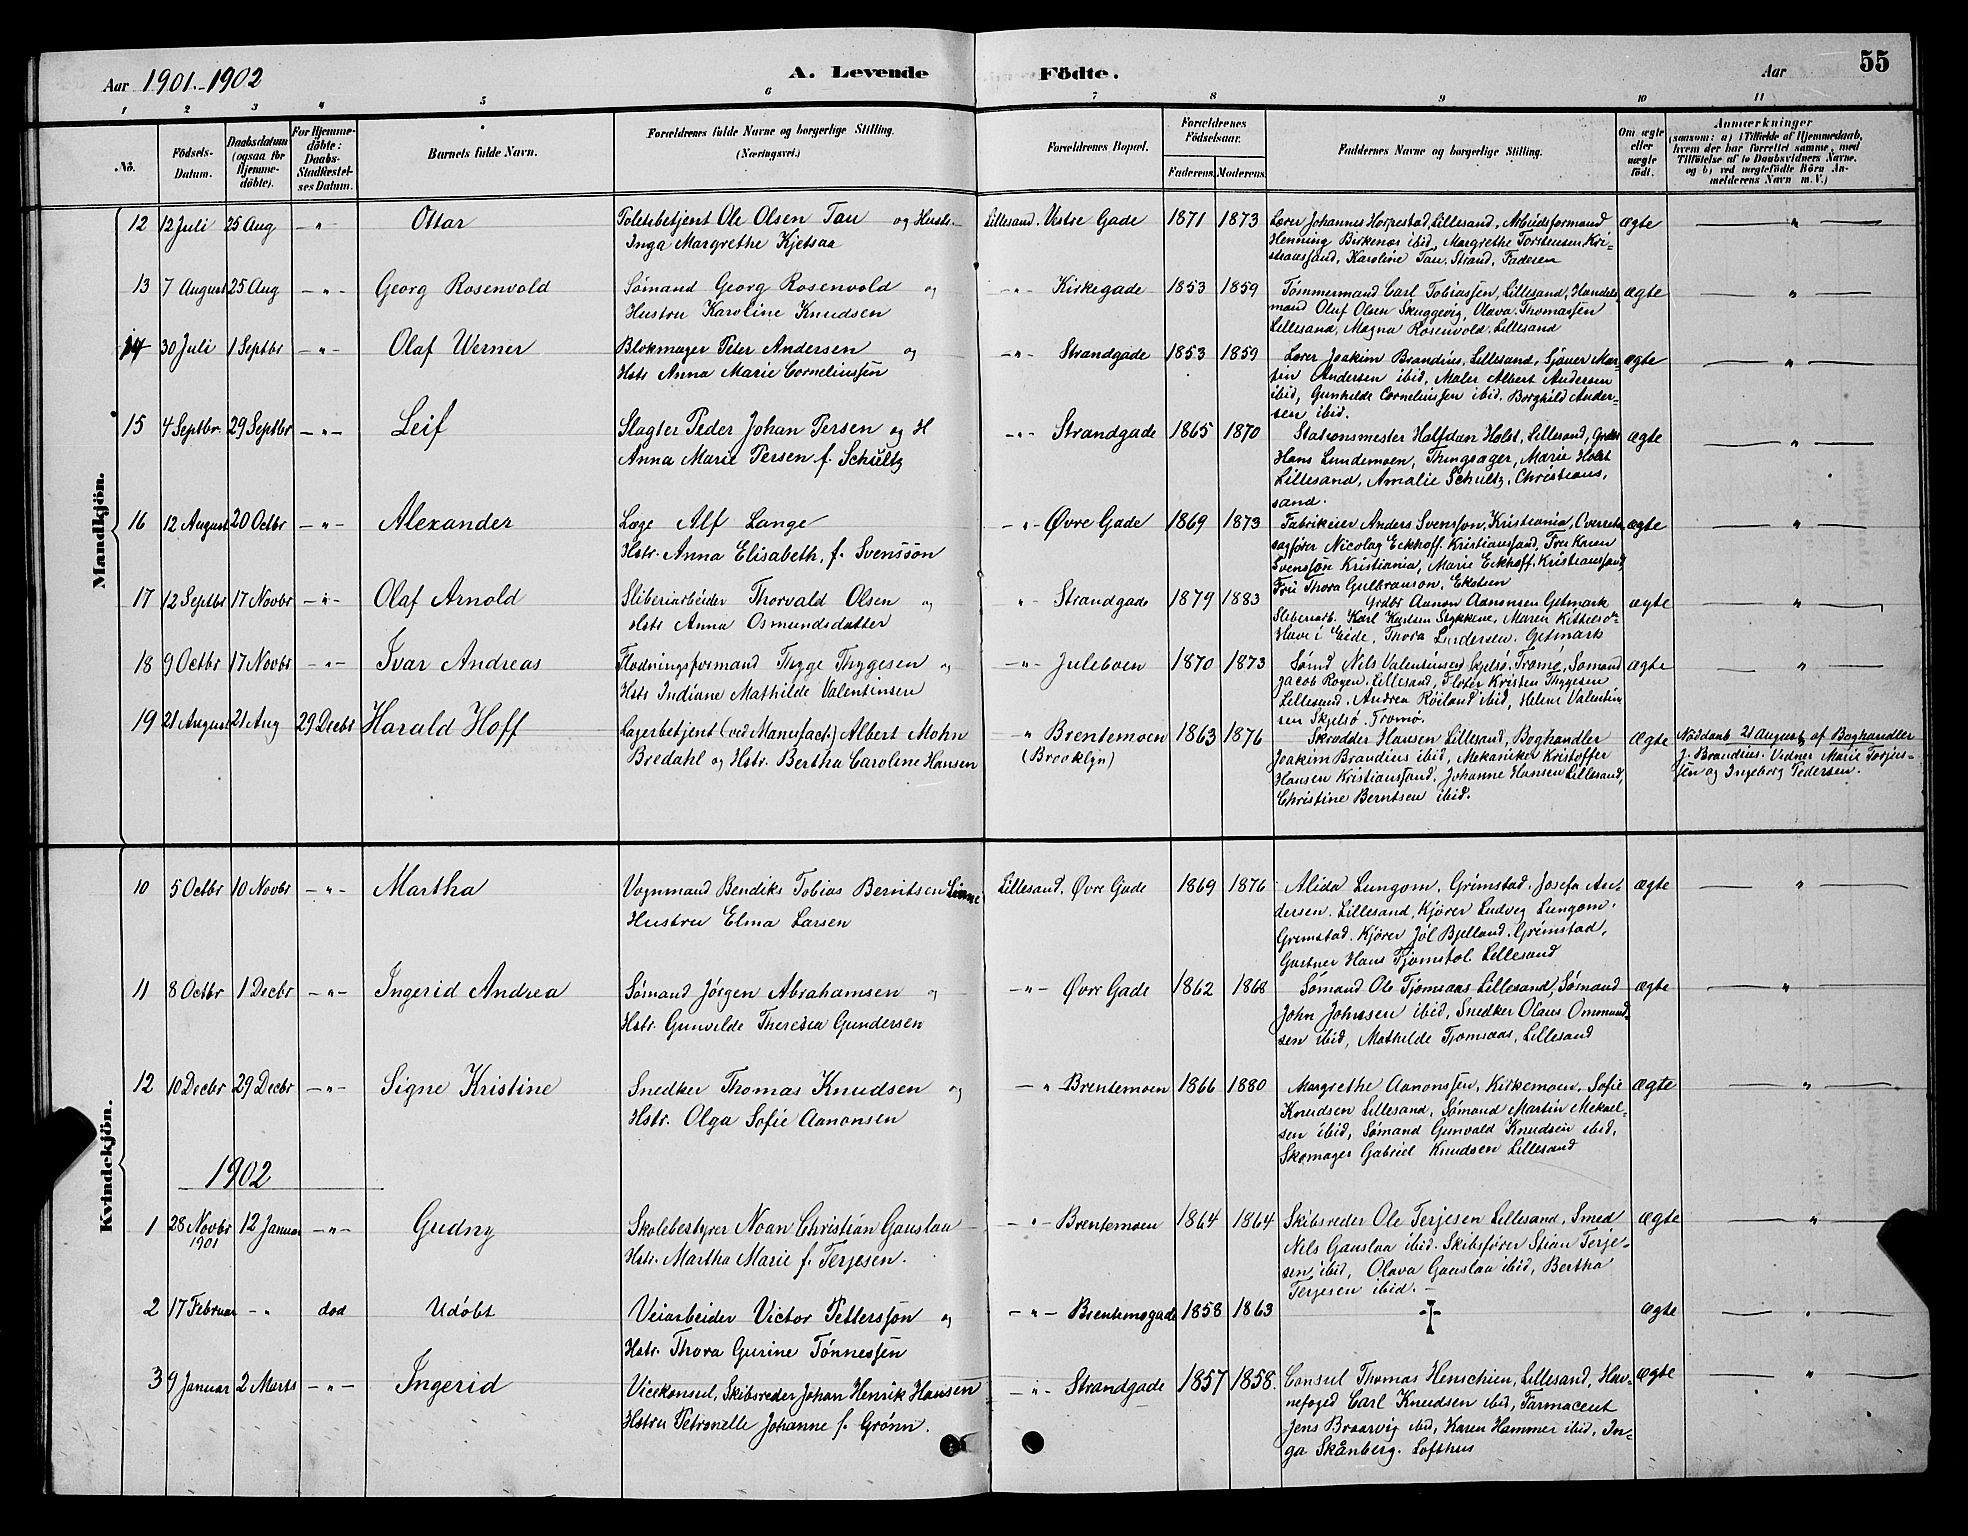 Aar 1901.-1902
A. Levende Födte.
Aar
55
1 2 3 4 5 6 7 8 9 10 11
No.
Födsels-Datum.
Daabsdatum (ogsaa for Hjemme-döbte).
For Hjemme-döbte: Daabs-Stadfæstel-ses Datum.
Barnets fulde Navn.
Forældrenes fulde Navne og borgerlige Stilling.
(Næringsvei.)
Forældrenes Bopæl.
Forældrenes Födselsaar.
Faderens. Moderens.
Faddernes Navne og borgerlige Stilling.
Om ægte eller uægte födt.
Anmærkninger
(saasom: a) i Tilfælde af Hjemmedaab,
hvem der har forrettet samme, med
Tilföielse af to Daabsvidners Navne.
og b) ved uægtefödte Börn An-
melderens Navn m. V.)
Mandkjön.
12 12 Juli 25 Aug -"- Ottar Toldbetjent Ole Olsen Tau og Hustr. Lillesand. Vestre Gade 1871 1873 Lærer Johannes Horpestad, Lillesand, Arbeidsformand ægte "
Inga Margrethe Kjetsaa Henning Birkenæs ibid, Margrethe Torstensen Kri-
stiansand, Karoline Tau. Strand, Faderen
13 7 August 25 Aug -"- Georg Rosenvold Sømand Georg Rosenvold og -"- Kirkegade 1853 1859 Tømmermand Carl Tobiassen, Lillesand, Handels ægte "
Hustru Karoline Knudsen mand Oluf Olsen Skuggevig, Olava Thomassen
Lillesand, Magna Rosenvold. Lillesand
14 30 Juli 1 Septbr -"- Olaf Werner Blokmager Peter Andersen og -"- Strandgade 1853 1859 Lærer Joakim Brandius, Lillesand, Sjauer Mar- ægte "
Hstr Anna Marie Corneliussen tin Andersen ibid, Maler Albert Andersen
ibid, Gunhilde Corneliussen ibid. Borghild Ander-
sen ibid.
15 4 Septbr. 29 Septbr -"- Leif Slagter Peder Johan Persen og H -"- Strandgade 1865 1870 Stationsmester Halfdan Holst, Lillesand, Grdbr ægte "
Anna Marie Persen f. Schultz Hans Lundemoen, Thingsager, Marie Holst
Lillesand, Amalie Schultz, Christians,
sand.
16 12 August 20 Octbr -"- Alexander Læge Alf Lange -"- Øvre Gade 1869 1873 Fabrikeier Anders Svensson, Kristiania, Overrets ægte "
Hstr. Anna Elisabeth, f. Svenssøn sagfører Nicolay Eckhoff. Kristianssand, Fru Karen
Svenssøn Kristiania, Marie Eckhoff, Kristianssand,
Fru Thora Gulbranson, Ekelsen
17 12 Septbr 17 Novbr -"- Olaf Arnold Sliberiarbeider Thorvald Olsen og " Strandgade 1879 1883 Grdbr Aanon Aanonsen Getmark ægte "
Hstr Anna Osmundsdatter Sliberiarb. Karl Karlsen Stykkene, Maren Kittelsd
Have i Eide, Thora Lundersen. Getmark
18 9 Octbr 17 Novbr -"- Ivar Andreas Flødningsformand Thygge Thygesen og -"- Juleboen 1870 1873 Sømd Nils Valentinsen Skjelsø. Tromø, Sømand ægte "
Hstr Indiane Mathilde Valentinsen Jacob Rogen. Lillesand, Fløter Kristen Thygesen
Lillesand, Andrea Røiland ibid, Helene Valentin
sen Skjelsø. Tromø.
19 21 August 21 Aug 29 Decbr Harald Hoff Lagerbetjent (ved Manufact.) Albert Mohn " Brentemoen 1863 1876 Skrædder Hansen Lillesand, Boghandler ægte Nøddaab 21 August, af Boghandler
Bredahl og Hstr. Bertha Caroline Hansen (Brooklyn) Joakim Brandius ibid, Mekaniker Kristoffer J. Brandius. Vidner Marie Torjus-
Hansen Kristianssand. Johanne Hansen Lillesand, sen og Ingeborg Pedersen.
Christine Berntsen ibid.
Kvindekjön.
10 5 Octbr 10 Novbr -"- Martha Vognmand Bendiks Tobias Berntsen Linne Lillesand. Øvre Gade 1869 1876 Alida Lungom, Grimstad. Josefa An- ægte "
Hustru Elma Larsen dersen. Lillesand, Kjører Ludvig Lungom.
Grimstad. Kjører Jøl Bjelland. Grimstad,
Gartner Hans Tjomstol Lillesand
11 8 Octbr 1 Decbr -"- Ingerid Andrea Sømand Jørgen Abrahamsen og -"- Øvre Gade 1862 1868 Sømand Ole Tjomsaas Lillesand, Sømand ægte "
Hstr. Gunvilde Theresia Gundersen John Johnsen ibid, Snedker Olaus Ommund-
sen ibid, Mathilde Tjomsaas, Lillesand
12 10 Decbr 29 Decbr -"- Signe Kristine Snedker Thomas Knudsen og -"- Brentemoen 1866 1880 Margrethe Aanonssen, Kirkemoen. Sofie ægte "
Hstr. Olga Sofie Aanonsen Knudsen Lillesand, Sømand Martin Mekael-
sen ibid, Sømand Gunvald Knudsen ibid,
Skomager Gabriel Knudsen Lillesand
1902
1 28 Novbr 1901 12 Januar -"- Gudny Skolebestyrer Noan Christian Gauslaa -"- Brentemoen 1864 1864 Skibsreder Ole Terjesen Lillesand, Smed ægte "
Hstr. Martha Marie f. Terjesen. Nils Gauslaa ibid. Skibsfører Stian Terje-
sen ibid, Olava Gauslaa ibid, Bertha
Terjesen ibid.
2 17 Februar -"- død Udøbt Veiarbeider Victor Pettersson og -"- Brentemogade 1858 1863 † ægte "
Hstr. Thora Gurine Tønnessen
3 9 Januar 2 Marts -"- Ingerid Vicekonsul, Skibsreder Johan Henrik Hansen -"- Strandgade 1857 1858. Consul Thomas Henschien, Lillesand, Hav- ægte "
Hstru Petronelle Johanne f. Grønn. nefoged Carl Knudsen ibid, Farmaceut
Jens Braarvig ibid, Karen Hammer ibid, In-
ga Skånberg. Lofthus